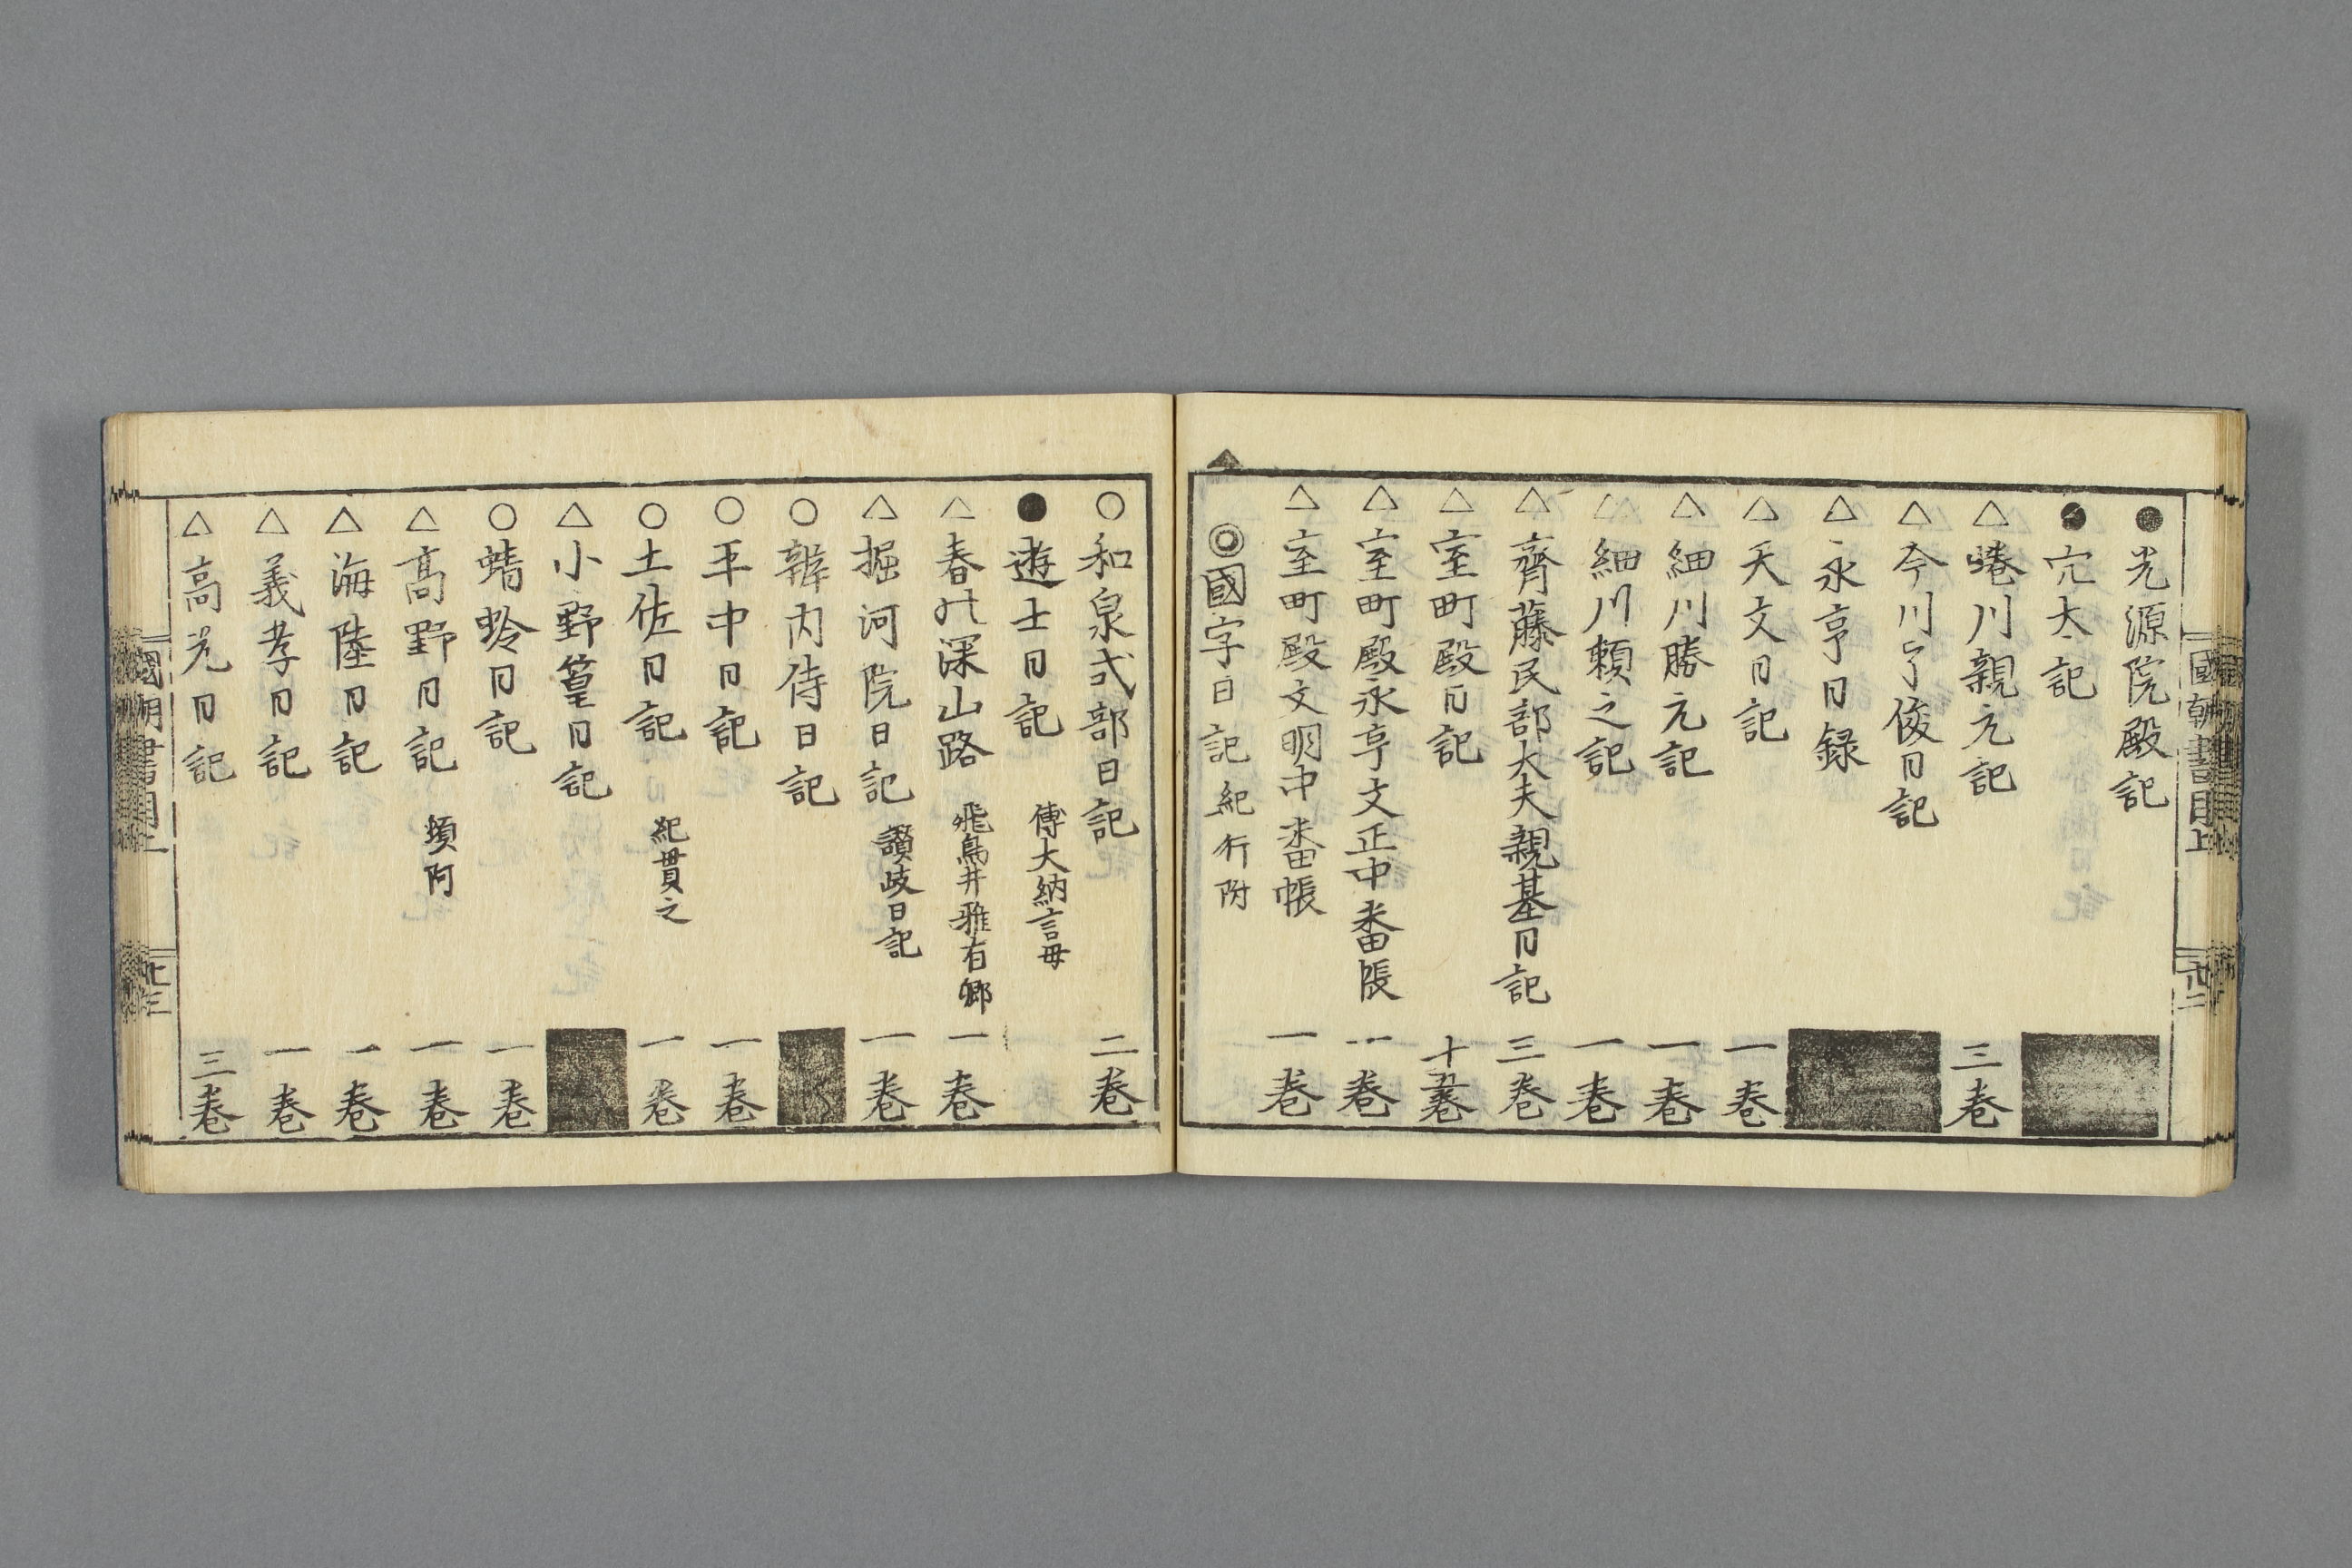 國朝書目上
廿二
●光源院殿記
●宂太記
△蜷川親元記 三巻
△今川了俊日記
△永亨日録
△天文日記 一巻
△細川勝元記 一巻
△細川頼之記 一巻
△齊藤民部大夫親基日記 三巻
△室町殿日記 十五巻
△室町殿永亨文正中番帳 一巻
△室町殿文明中番帳 一巻
◎國字日記 紀行附
○和泉式部日記 二巻
●遊士日記 傅大納言母
△春の深山路 飛鳥井雅有卿 一巻
△掘河院日記 讃岐日記 一巻
○辨内侍日記
○平中日記 一巻
○土佐日記 紀貫之 一巻
△小野篁日記
○蜻蛉日記 一巻
△高野日記 頓阿 一巻
△海陸日記 一巻
△義孝日記 一巻
△高光日記 三巻
國朝書目上
廿三